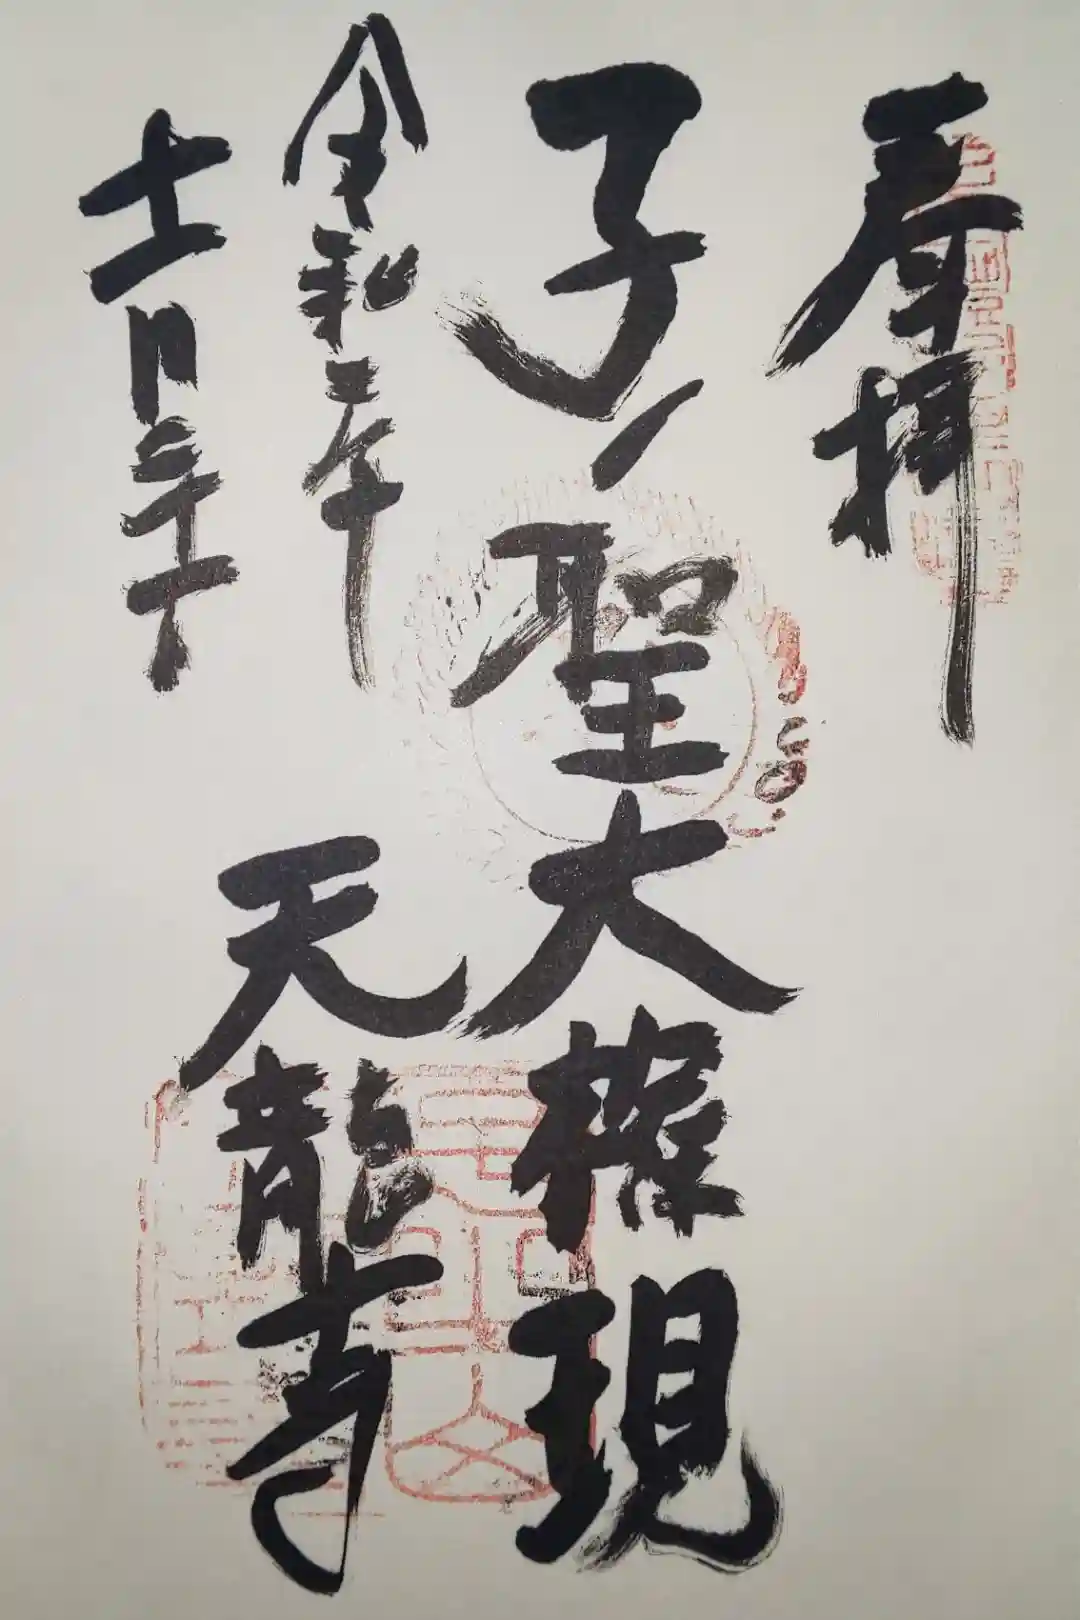 奉拝
子ノ聖大権現
令和三年
十一月
天龍寺